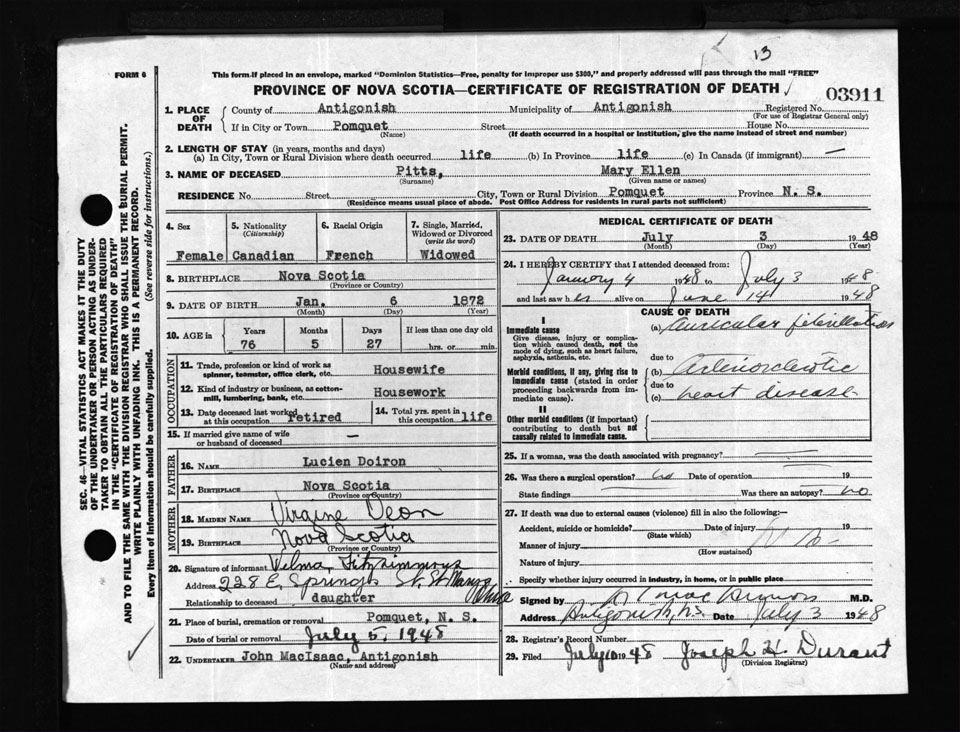 13
FORM 6
This form if placed in an envelope, marked "Dominion Statistics—Free, penalty for improper use $300," and properly addressed will pass through the mail "FREE"
PROVINCE OF NOVA SCOTIA—CERTIFICATE OF REGISTRATION OF DEATH
03911
1. PLACE OF DEATH County of Antigonish Municipality of Antigonish Registered No.
(For use of Registrar General only)
If in City or Town Pomquet Street House No.
(Name) (If death occurred in a hospital or institution, give the name instead of street and number)
2. LENGTH OF STAY (in years, months and days)
(a) In City, Town or Rural Division where death occurred life (b) In Province life (c) In Canada (if immigrant) —
3. NAME OF DECEASED Pitts, Mary Ellen
(Surname) (Given name or names)
RESIDENCE No. Street City, Town or Rural Division Pomquet Province N. S.
(Residence means usual place of abode. Post Office Address for residents in rural parts not sufficient)
4. Sex 5. Nationality (Citizenship) 6. Racial Origin 7. Single, Married, Widowed or Divorced (write the word)
Female Canadian French Widowed
8. BIRTHPLACE Nova Scotia
(Province or Country)
9. DATE OF BIRTH Jan. 6 1872
(Month) (Day) (Year)
10. AGE in Years Months Days If less than one day old
76 5 27 hrs. or min.
OCCUPATION
11. Trade, profession or kind of work as spinner, teamster, office clerk, etc. Housewife
12. Kind of industry or business, as cotton-mill, lumbering, bank, etc. Housework
13. Date deceased last worked at this occupation retired 14. Total yrs. spent in this occupation life
15. If married give name of wife or husband of deceased —
FATHER
16. NAME Lucien Doiron
17. BIRTHPLACE Nova Scotia
(Province or Country)
MOTHER
18. MAIDEN NAME Virgine Deon
19. BIRTHPLACE Nova Scotia
(Province or Country)
20. Signature of informant Velma Fitzsimmons
Address 228 E. Springs St. St Marys Ohio
Relationship to deceased daughter
21. Place of burial, cremation or removal Pomquet, N. S.
Date of burial or removal July 5, 1948
22. UNDERTAKER John MacIsaac, Antigonish
(Name and address)
MEDICAL CERTIFICATE OF DEATH
23. DATE OF DEATH July 3 1948
(Month) (Day) (Year)
24. I HEREBY CERTIFY that I attended deceased from:
January 4 1948 to July 3 1948
and last saw her alive on June 14 1948
CAUSE OF DEATH
I
Immediate cause
Give disease, injury or complication which caused death, not the mode of dying, such as heart failure, asphyxia, asthenia, etc.
(a) Auricular fibrillation
due to
Morbid conditions, if any, giving rise to immediate cause (stated in order proceeding backwards from immediate cause).
(b) Arteriosclerotic
due to
(c) heart disease
II
Other morbid conditions (if important) contributing to death but not causally related to immediate cause.
25. If a woman, was the death associated with pregnancy?
26. Was there a surgical operation? no Date of operation 19
State findings Was there an autopsy? no
27. If death was due to external causes (violence) fill in also the following:—
Accident, suicide or homicide? Date of injury 19
(State which)
Manner of injury
(How sustained)
Nature of injury
Specify whether injury occurred in industry, in home, or in public place
Signed by M.D.
Address Antigonish, N.S. Date July 3 1948
28. Registrar's Record Number
29. Filed July 10 1948 Joseph H Durant
(Division Registrar)
SEC. 46—VITAL STATISTICS ACT MAKES IT THE DUTY
OF THE UNDERTAKER OR PERSON ACTING AS UNDER-
TAKER TO OBTAIN ALL THE PARTICULARS REQUIRED
IN THE "CERTIFICATE OF REGISTRATION OF DEATH"
AND TO FILE THE SAME WITH THE DIVISION REGISTRAR WHO SHALL ISSUE THE BURIAL PERMIT.
WRITE PLAINLY WITH UNFADING INK. THIS IS A PERMANENT RECORD.
Every item of Information should be carefully supplied. (See reverse side for instructions.)